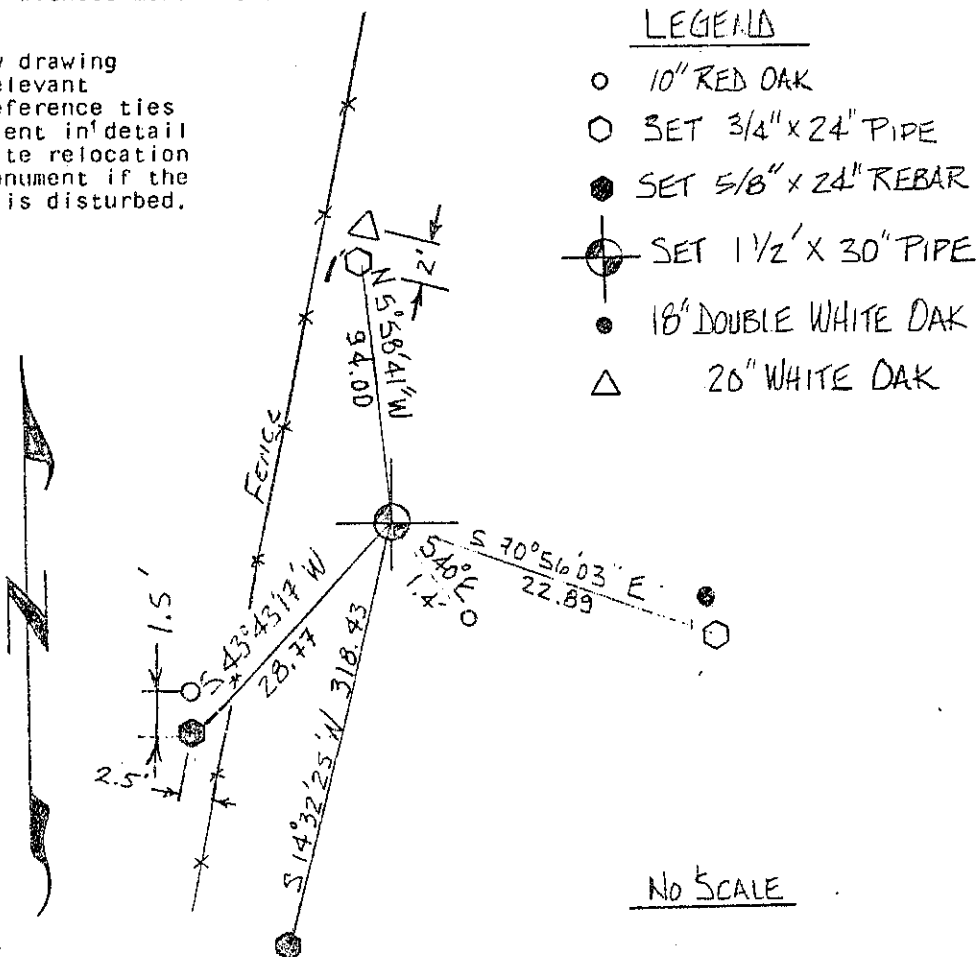 drawing
elevant
eference ties
ent in detail
te relocation
onument if the
is disturbed.
LEGEND
10" RED OAK
SET 3/4" x 24" PIPE
SET 5/8" x 24" REBAR
SET 1 1/2' X 30" PIPE
18" DOUBLE WHITE OAK
20" WHITE OAK
2'
N 5°58'41" W
94.00
FENCE
S 70°56'03" E
22.89
S40°E
1.4'
S 43°43'17" W
28.77
1.5'
2.5'
S 14°32'25" W 318.43
NO SCALE